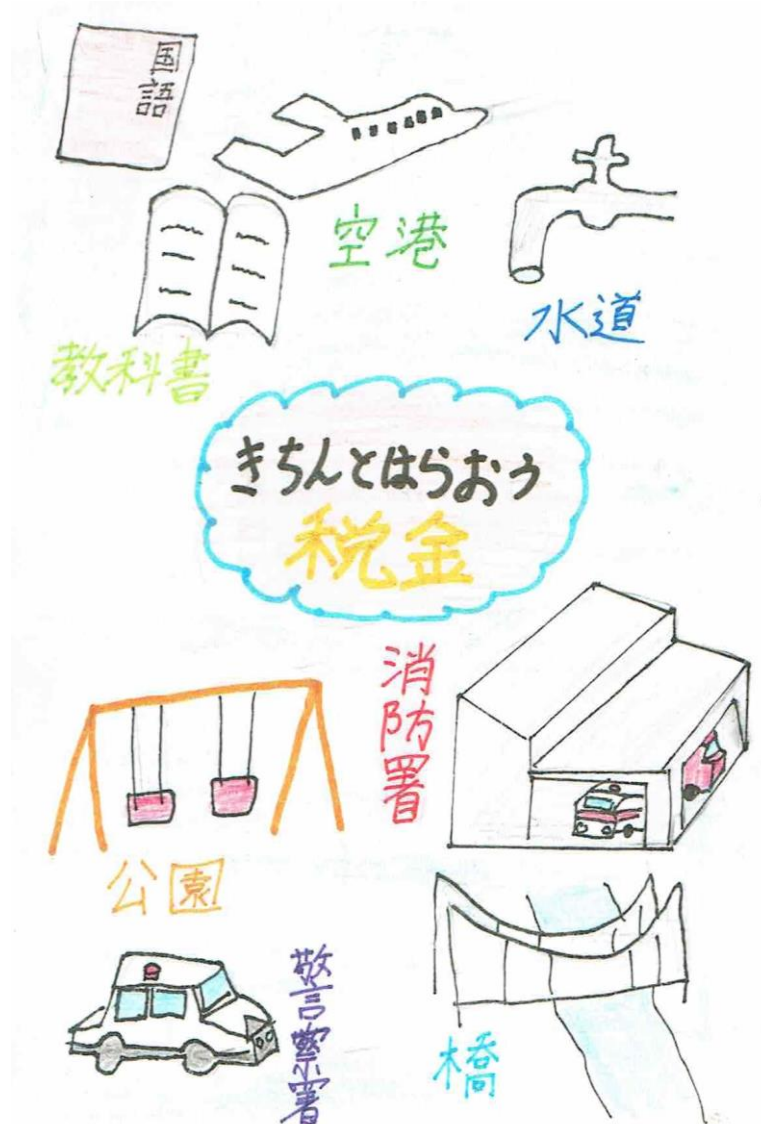 国語
空港
水道
教科書
きちんとはらおう
税金
消防署
公園
警察署
橋